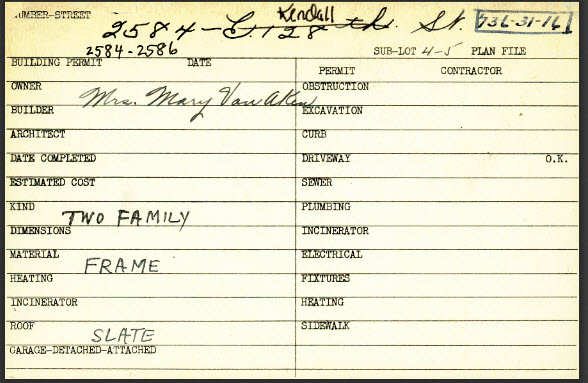 NUMBER-STREET 2584-E. 128 th. St. Kendall 736-31-16
2584-2586 SUB-LOT 4-5 PLAN FILE
BUILDING PERMIT DATE PERMIT CONTRACTOR
OWNER Mrs. Mary Van Aken OBSTRUCTION
BUILDER EXCAVATION
ARCHITECT CURB
DATE COMPLETED DRIVEWAY O.K.
ESTIMATED COST SEWER
KIND TWO FAMILY PLUMBING
DIMENSIONS INCINERATOR
MATERIAL FRAME ELECTRICAL
HEATING FIXTURES
INCINERATOR HEATING
ROOF SLATE SIDEWALK
GARAGE-DETACHED-ATTACHED